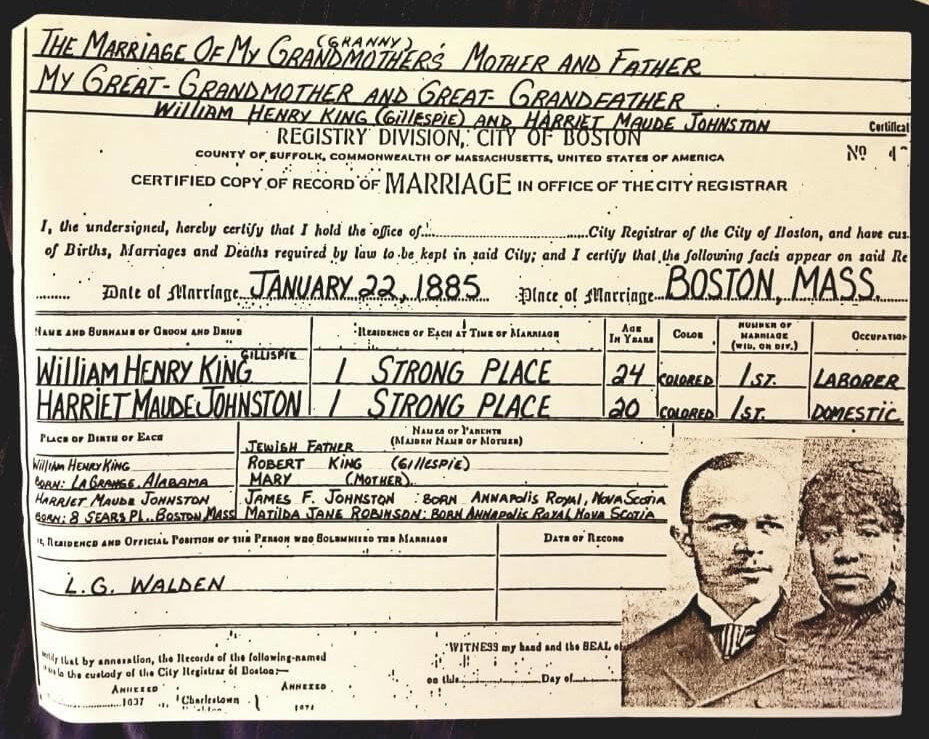 (GRANNY)
THE MARRIAGE OF MY GRANDMOTHER'S MOTHER AND FATHER
MY GREAT-GRANDMOTHER AND GREAT-GRANDFATHER
WILLIAM HENRY KING (GILLESPIE) AND HARRIET MAUDE JOHNSTON
Certificat
REGISTRY DIVISION, CITY OF BOSTON
COUNTY OF SUFFOLK, COMMONWEALTH OF MASSACHUSETTS, UNITED STATES OF AMERICA
No
CERTIFIED COPY OF RECORD OF MARRIAGE IN OFFICE OF THE CITY REGISTRAR
I, the undersigned, hereby certify that I hold the office of City Registrar of the City of Boston, and have cus
of Births, Marriages and Deaths required by law to be kept in said City; and I certify that the following facts appear on said Re
Date of Marriage JANUARY 22, 1885 Place of Marriage BOSTON, MASS.
NAME AND SURNAME OF GROOM AND BRIDE RESIDENCE OF EACH AT TIME OF MARRIAGE AGE IN YEARS COLOR NUMBER OF MARRIAGE (WID. OR DIV.) OCCUPATION
GILLISPIE
WILLIAM HENRY KING 1 STRONG PLACE 24 COLORED 1ST. LABORER
HARRIET MAUDE JOHNSTON 1 STRONG PLACE 20 COLORED 1ST. DOMESTIC
PLACE OF BIRTH OF EACH NAMES OF PARENTS
(MAIDEN NAME OF MOTHER)
JEWISH FATHER
WILLIAM HENRY KING ROBERT KING (GILLESPIE)
BORN: LAGRANGE, ALABAMA MARY (MOTHER)
HARRIET MAUDE JOHNSTON JAMES F. JOHNSTON : BORN ANNAPOLIS ROYAL, NOVA SCOTIA
BORN: 8 SEARS PL., BOSTON, MASS MATILDA JANE ROBINSON: BORN ANNAPOLIS ROYAL, NOVA SCOTIA
, RESIDENCE AND OFFICIAL POSITION OF THE PERSON WHO SOLEMNIZED THE MARRIAGE DATE OF RECORD
L.G. WALDEN
that by annexation, the Records of the following-named WITNESS my hand and the SEAL of
the custody of the City Registrar of Boston:— on this Day of
ANNEXED ANNEXED
Charlestown